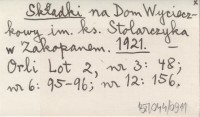 Składki na Dom Wyciecz-
kowy im. ks. Stolarczyka
w Zakopanem. 1921. –
Orli Lot 2, nr 3: 48;
nr 6: 95-96; nr 12: 156.